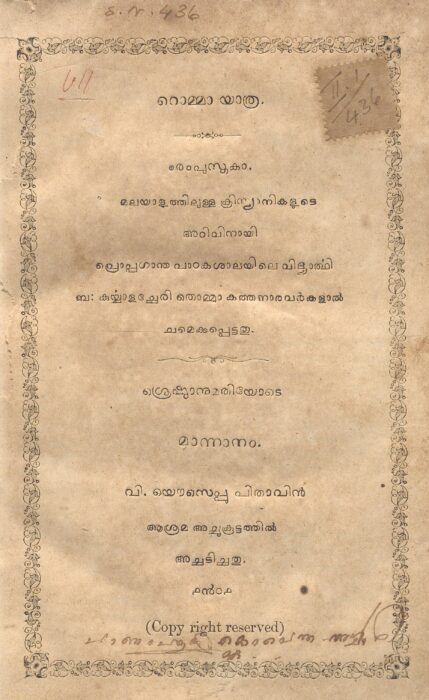 S. N. 436
II. I / 436
റൊമ്മാ യാത്ര.
൧ാംപുസ്തകം.
മലയാളത്തിലുള്ള ക്രിസ്ത്യാനികളുടെ
അറിവിനായി
പ്രൊപ്പഗാന്ത പാഠകശാലയിലെ വിദ്യാൎത്ഥി
ബ: കുൎയ്യാളച്ചേരി തൊമ്മാ കത്തനാരവർകളാൽ
ചമെക്കപ്പെട്ടതു.
ശ്രെഷ്ഠാനുമതിയോടെ
മാന്നാനം.
വി. യൌസെപ്പു പിതാവിൻ
ആശ്രമ അച്ചുകൂട്ടത്തിൽ
അച്ചടിച്ചതു.
൧൯൦൧
(Copy right reserved)